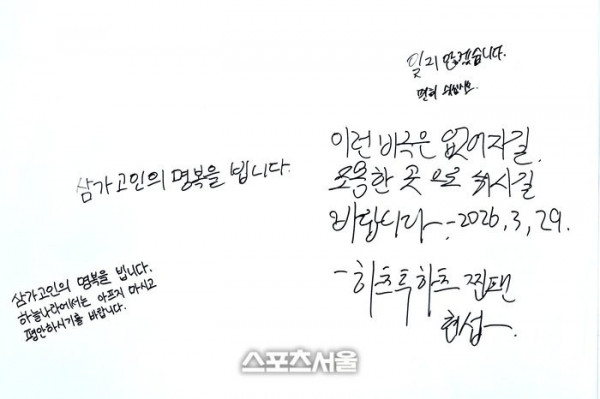 잊지 않겠습니다.
편히 쉬십시오.
이런 비극은 없어지길.
조용한 곳으로 쉬시길
바랍니다 - 2026, 3, 29.
- 하츠투하츠 찐팬
현섭 -
삼가고인의 명복을 빕니다.
삼가고인의 명복을 빕니다.
하늘나라에서는 아프지 마시고
평안하시기를 바랍니다.
스포츠서울